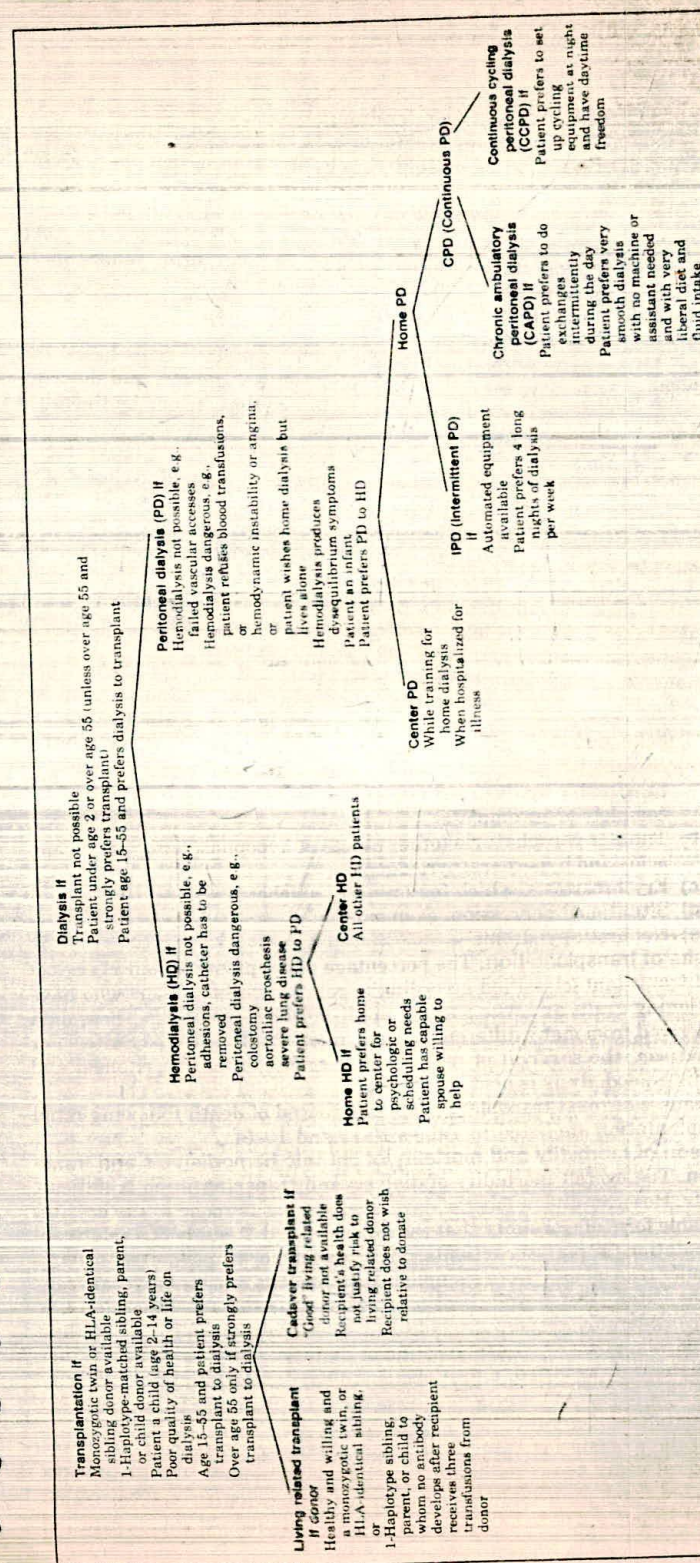 Transplantation if
Monozygotic twin or HLA-identical
sibling donor available
1-Haplotype-matched sibling, parent,
or child donor available
Patient a child (age 2–14 years)
Poor quality of health or life on
dialysis
Age 15–55 and patient prefers
transplant to dialysis
Over age 55 only if strongly prefers
transplant to dialysis
Living related transplant
if donor
Healthy and willing and
a monozygotic twin, or
HLA-identical sibling,
or
1-Haplotype sibling,
parent, or child to
whom no antibody
develops after recipient
receives three
transfusions from
donor
Cadaver transplant if
"Good" living related
donor not available
Recipient's health does
not justify risk to
living related donor
Recipient does not wish
relative to donate
Dialysis if
Transplant not possible
Patient under age 2 or over age 55 (unless over age 55 and
strongly prefers transplant)
Patient age 15–55 and prefers dialysis to transplant
Hemodialysis (HD) if
Peritoneal dialysis not possible, e.g.,
adhesions, catheter has to be
removed
Peritoneal dialysis dangerous, e.g.,
colostomy
aortoiliac prosthesis
severe lung disease
Patient prefers HD to PD
Home HD if
Patient prefers home
to center for
psychologic or
scheduling needs
Patient has capable
spouse willing to
help
Center HD
All other HD patients
Peritoneal dialysis (PD) if
Hemodialysis not possible, e.g.,
failed vascular accesses
Hemodialysis dangerous, e.g.,
patient refuses blood transfusions,
or
hemodynamic instability or angina,
or
patient wishes home dialysis but
lives alone
Hemodialysis produces
dysequilibrium symptoms
Patient an infant
Patient prefers PD to HD
Center PD
While training for
home dialysis
When hospitalized for
illness
Home PD
IPD (Intermittent PD)
if
Automated equipment
available
Patient prefers 4 long
nights of dialysis
per week
CPD (Continuous PD)
Chronic ambulatory
peritoneal dialysis
(CAPD) if
Patient prefers to do
exchanges
intermittently
during the day
Patient prefers very
smooth dialysis
with no machine or
assistant needed
and with very
liberal diet and
fluid intake
Continuous cycling
peritoneal dialysis
(CCPD) if
Patient prefers to set
up cycling
equipment at night
and have daytime
freedom